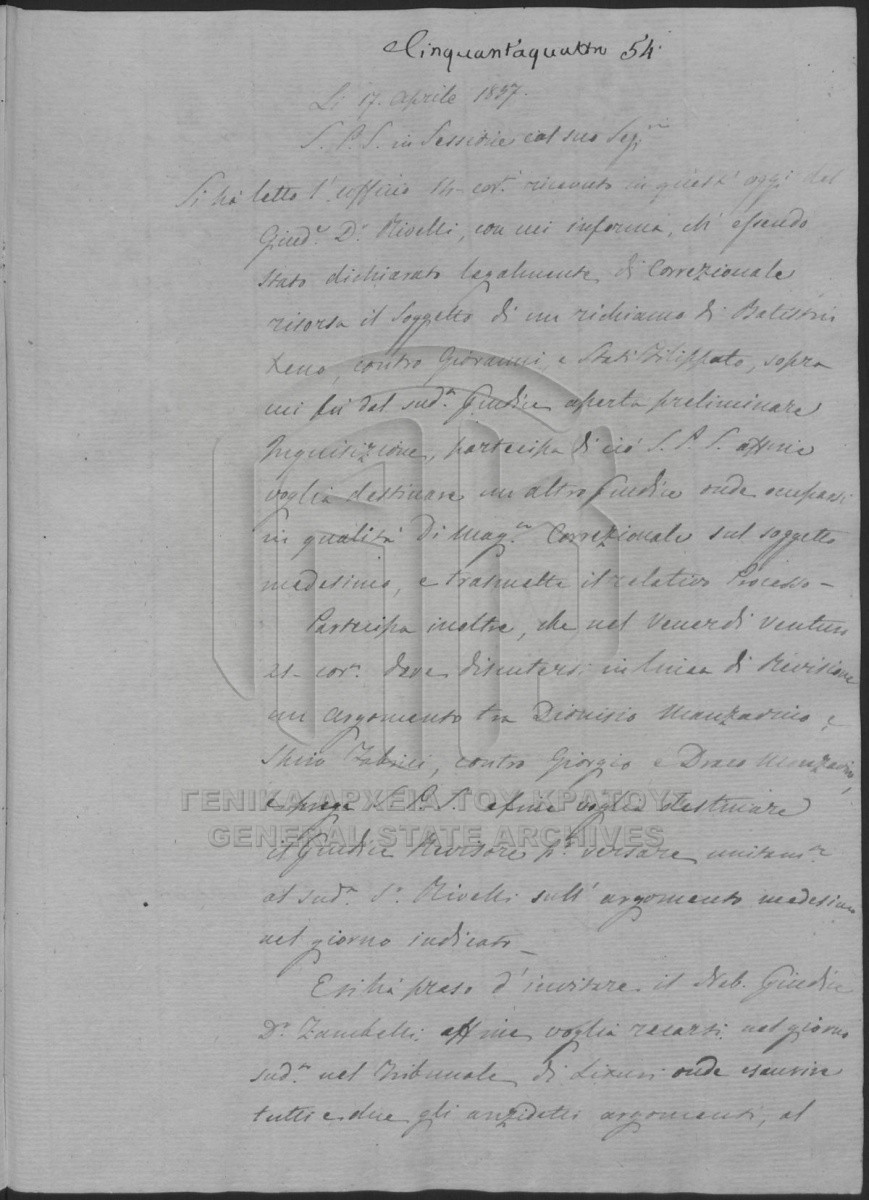 Cinquantaquattro 54.
Li 17. Aprile 1837.
S. P. S. in Sessione col suo
Si há letto l'officio 14. cor.e ricevuto in quest' oggi dal
Giud.e D.r Rivelli, con cui informa, ch' essendo
stato dichiarato legalmente di Correzionale
risorsa il soggetto di un richiamo di
Xeno, contro Giovanni, e Stati Filippato, sopra
cui fú dal sud.o Giudice aperta preliminare
Inquisizione, partecipa di ció S. P. S. affine
voglia destinare un altro Giudice onde occuparsi
in qualitá di Mag.to Correzionale sul soggetto
medesimo, e trasmette il relativo Processo —
Partecipa inoltre, che nel Venerdi venturo
21. cor.e deve discutersi in linea di Revisione
un argomento tra Dionisio Manzavino, e
contro Giorgio e Draco Manzavino,
e prega S. P. S. affine voglia destinare
il Giudice Revisore p.r versare unitam.te
al sud.o S.r Rivelli sull' argomento medesimo
nel giorno indicato —
E si há preso d'invitare il Nob. Giudice
D.r Zambelli affine voglia recarsi nel giorno
sud.o nel Tribunale di Lixuri onde esaurire
tutti e due gli anzidetti argomenti, al
ΓΕΝΙΚΑ ΑΡΧΕΙΑ ΤΟΥ ΚΡΑΤΟΥΣ
GENERAL STATE ARCHIVES